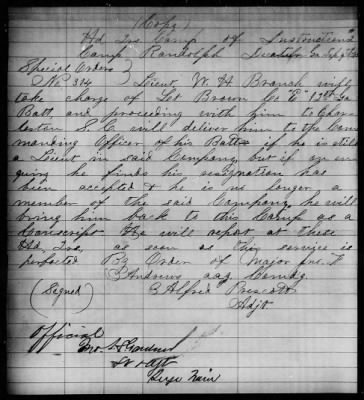 (Copy)
Hd Qrs Camp of Instruction
Camp Randolph Decatur Ga
Special Orders
No 394 Lieut. W. H. Branch will
take charge of Lt Brown Co "E" 12th Ga
Batt. and proceeding with him to Char
leston S.C. will deliver him to the Com
manding Officer of his Batt if he is still
a Lieut in said Company, but if on en
quiry he finds his resignation has
been accepted & he is no longer a
member of the said Company he will
bring him back to this Camp as a
Conscript He will report at these
Hd Qrs. as soon as this service is
perfected By Order of Major Jno. F
Andrews Comdg.
(Signed) Alfred Prescott
Adjt.
Official